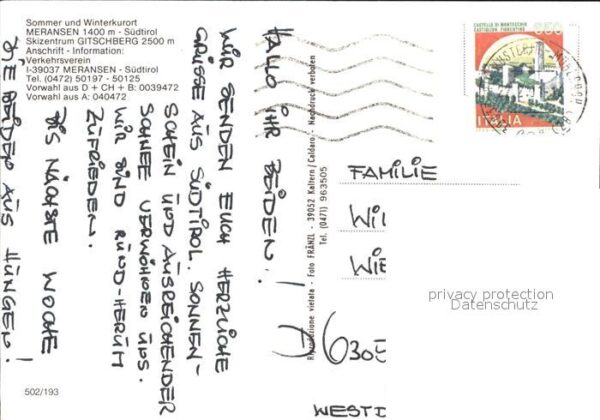 Sommer und Winterkurort
MERANSEN 1400 m - Südtirol
Skizentrum GITSCHBERG 2500 m
Anschrift - Information:
Verkehrsverein
I-39037 MERANSEN - Südtirol
Tel. (0472) 50197 - 50125
Vorwahl aus D + CH + B: 0039472
Vorwahl aus A: 040472
HALLO IHR BEIDEN!
WIR SENDEN EUCH HERZLICHE
GRÜSSE AUS SÜDTIROL. SONNEN-
SCHEIN UND AUSREICHENDER
SCHNEE VERWÖHNEN UNS.
WIR SIND RUND-HERUM
ZUFRIEDEN.
BIS NÄCHSTE WOCHE
DIE BEIDEN AUS HÜNGEN!
Riproduzione vietata - Foto FRÄNZL - 39052 Kaltern / Caldaro. - Nachdruck verboten
Tel. (0471) 963505
CASTELLO DI MONTECCHIO
CASTIGLION FIORENTINO
650
ITALIA
FAMILIE
WIL
WIE
630
WEST
privacy protection
Datenschutz
502/193